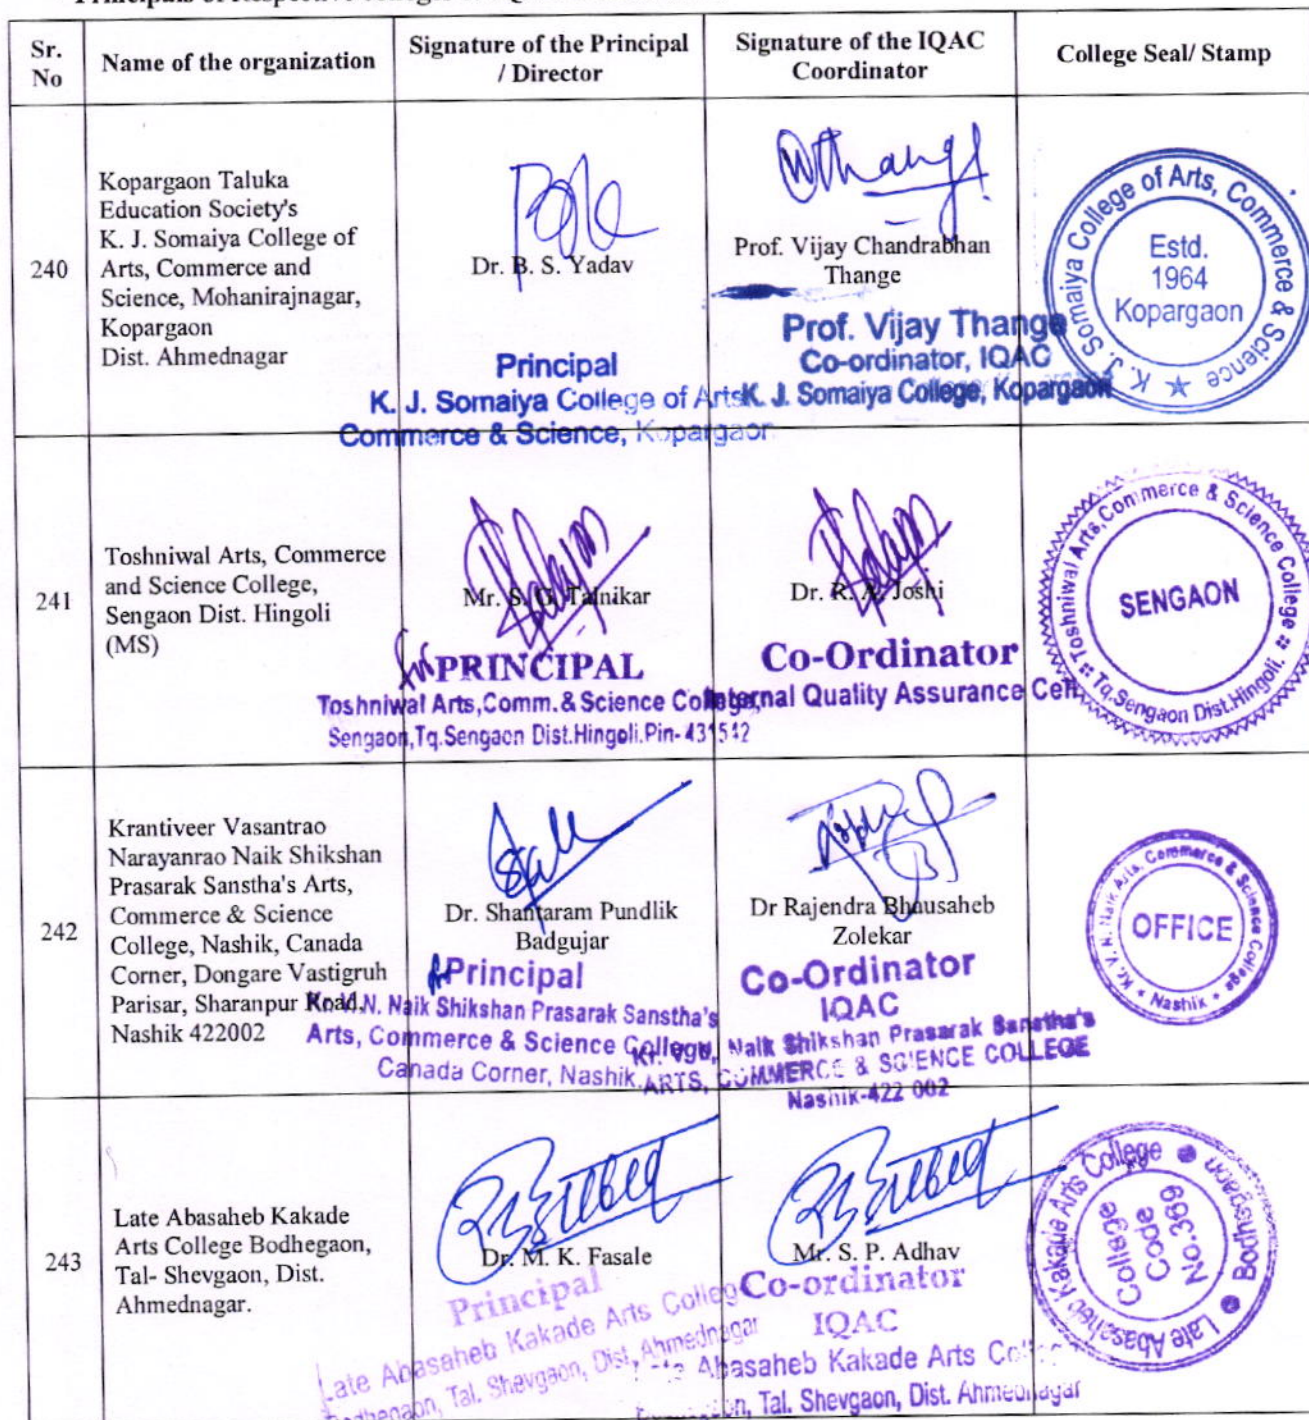 Sr. No
Name of the organization
Signature of the Principal / Director
Signature of the IQAC Coordinator
College Seal/ Stamp
240
Kopargaon Taluka
Education Society's
K. J. Somaiya College of
Arts, Commerce and
Science, Mohanirajnagar,
Kopargaon
Dist. Ahmednagar
Dr. B. S. Yadav
Principal
K. J. Somaiya College of Arts
Commerce & Science, Kopargaon
Prof. Vijay Chandrabhan
Thange
Prof. Vijay Thange
Co-ordinator, IQAC
K. J. Somaiya College, Kopargaon
K. J. Somaiya College of Arts, Commerce & Science
Estd.
1964
Kopargaon
241
Toshniwal Arts, Commerce
and Science College,
Sengaon Dist. Hingoli
(MS)
Mr. S. G. Talnikar
PRINCIPAL
Toshniwal Arts,Comm.& Science College,
Sengaon,Tq.Sengaon Dist.Hingoli.Pin-431542
Dr. R. A. Joshi
Co-Ordinator
Internal Quality Assurance Cell
Toshniwal Arts,Commerce & Science College
Tq.Sengaon Dist.Hingoli.
SENGAON
242
Krantiveer Vasantrao
Narayanrao Naik Shikshan
Prasarak Sanstha's Arts,
Commerce & Science
College, Nashik, Canada
Corner, Dongare Vastigruh
Parisar, Sharanpur Road,
Nashik 422002
Dr. Shantaram Pundlik
Badgujar
Principal
Kr. V.N. Naik Shikshan Prasarak Sanstha's
Arts, Commerce & Science College,
Canada Corner, Nashik.
Dr Rajendra Bhausaheb
Zolekar
Co-Ordinator
IQAC
Kr. V.N. Naik Shikshan Prasarak Sanstha's
ARTS, COMMERCE & SCIENCE COLLEGE
Nashik-422 002
Kr. V. N. Naik Arts, Commerce & Science College
Nashik
OFFICE
243
Late Abasaheb Kakade
Arts College Bodhegaon,
Tal- Shevgaon, Dist.
Ahmednagar.
Dr. M. K. Fasale
Principal
Late Abasaheb Kakade Arts College
Bodhegaon, Tal. Shevgaon, Dist, Ahmednagar
Mr. S. P. Adhav
Co-ordinator
IQAC
Abasaheb Kakade Arts
Tal. Shevgaon, Dist. Ahmednagar
Late Abasaheb Kakade Arts College
Bodhegaon
College
Code
No.369